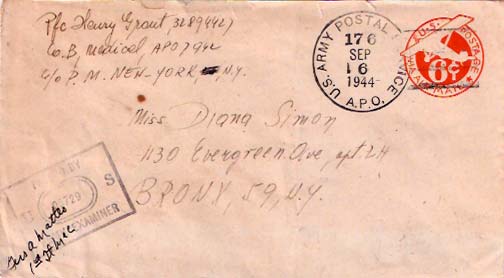 Pfc Henry Grant 32894427
Co. B, Medical, APO 7942
C/o P.M. NEW-YORK N.Y.
U.S. ARMY POSTAL SERVICE
176
SEP
16
1944
A.P.O.
U.S. POSTAGE
6¢
VIA AIR MAIL
Miss Diana Simon
1130 Evergreen Ave, apt. 2H
BRONX, 59, N.Y.
BY
U S
729
EXAMINER
1st Lt